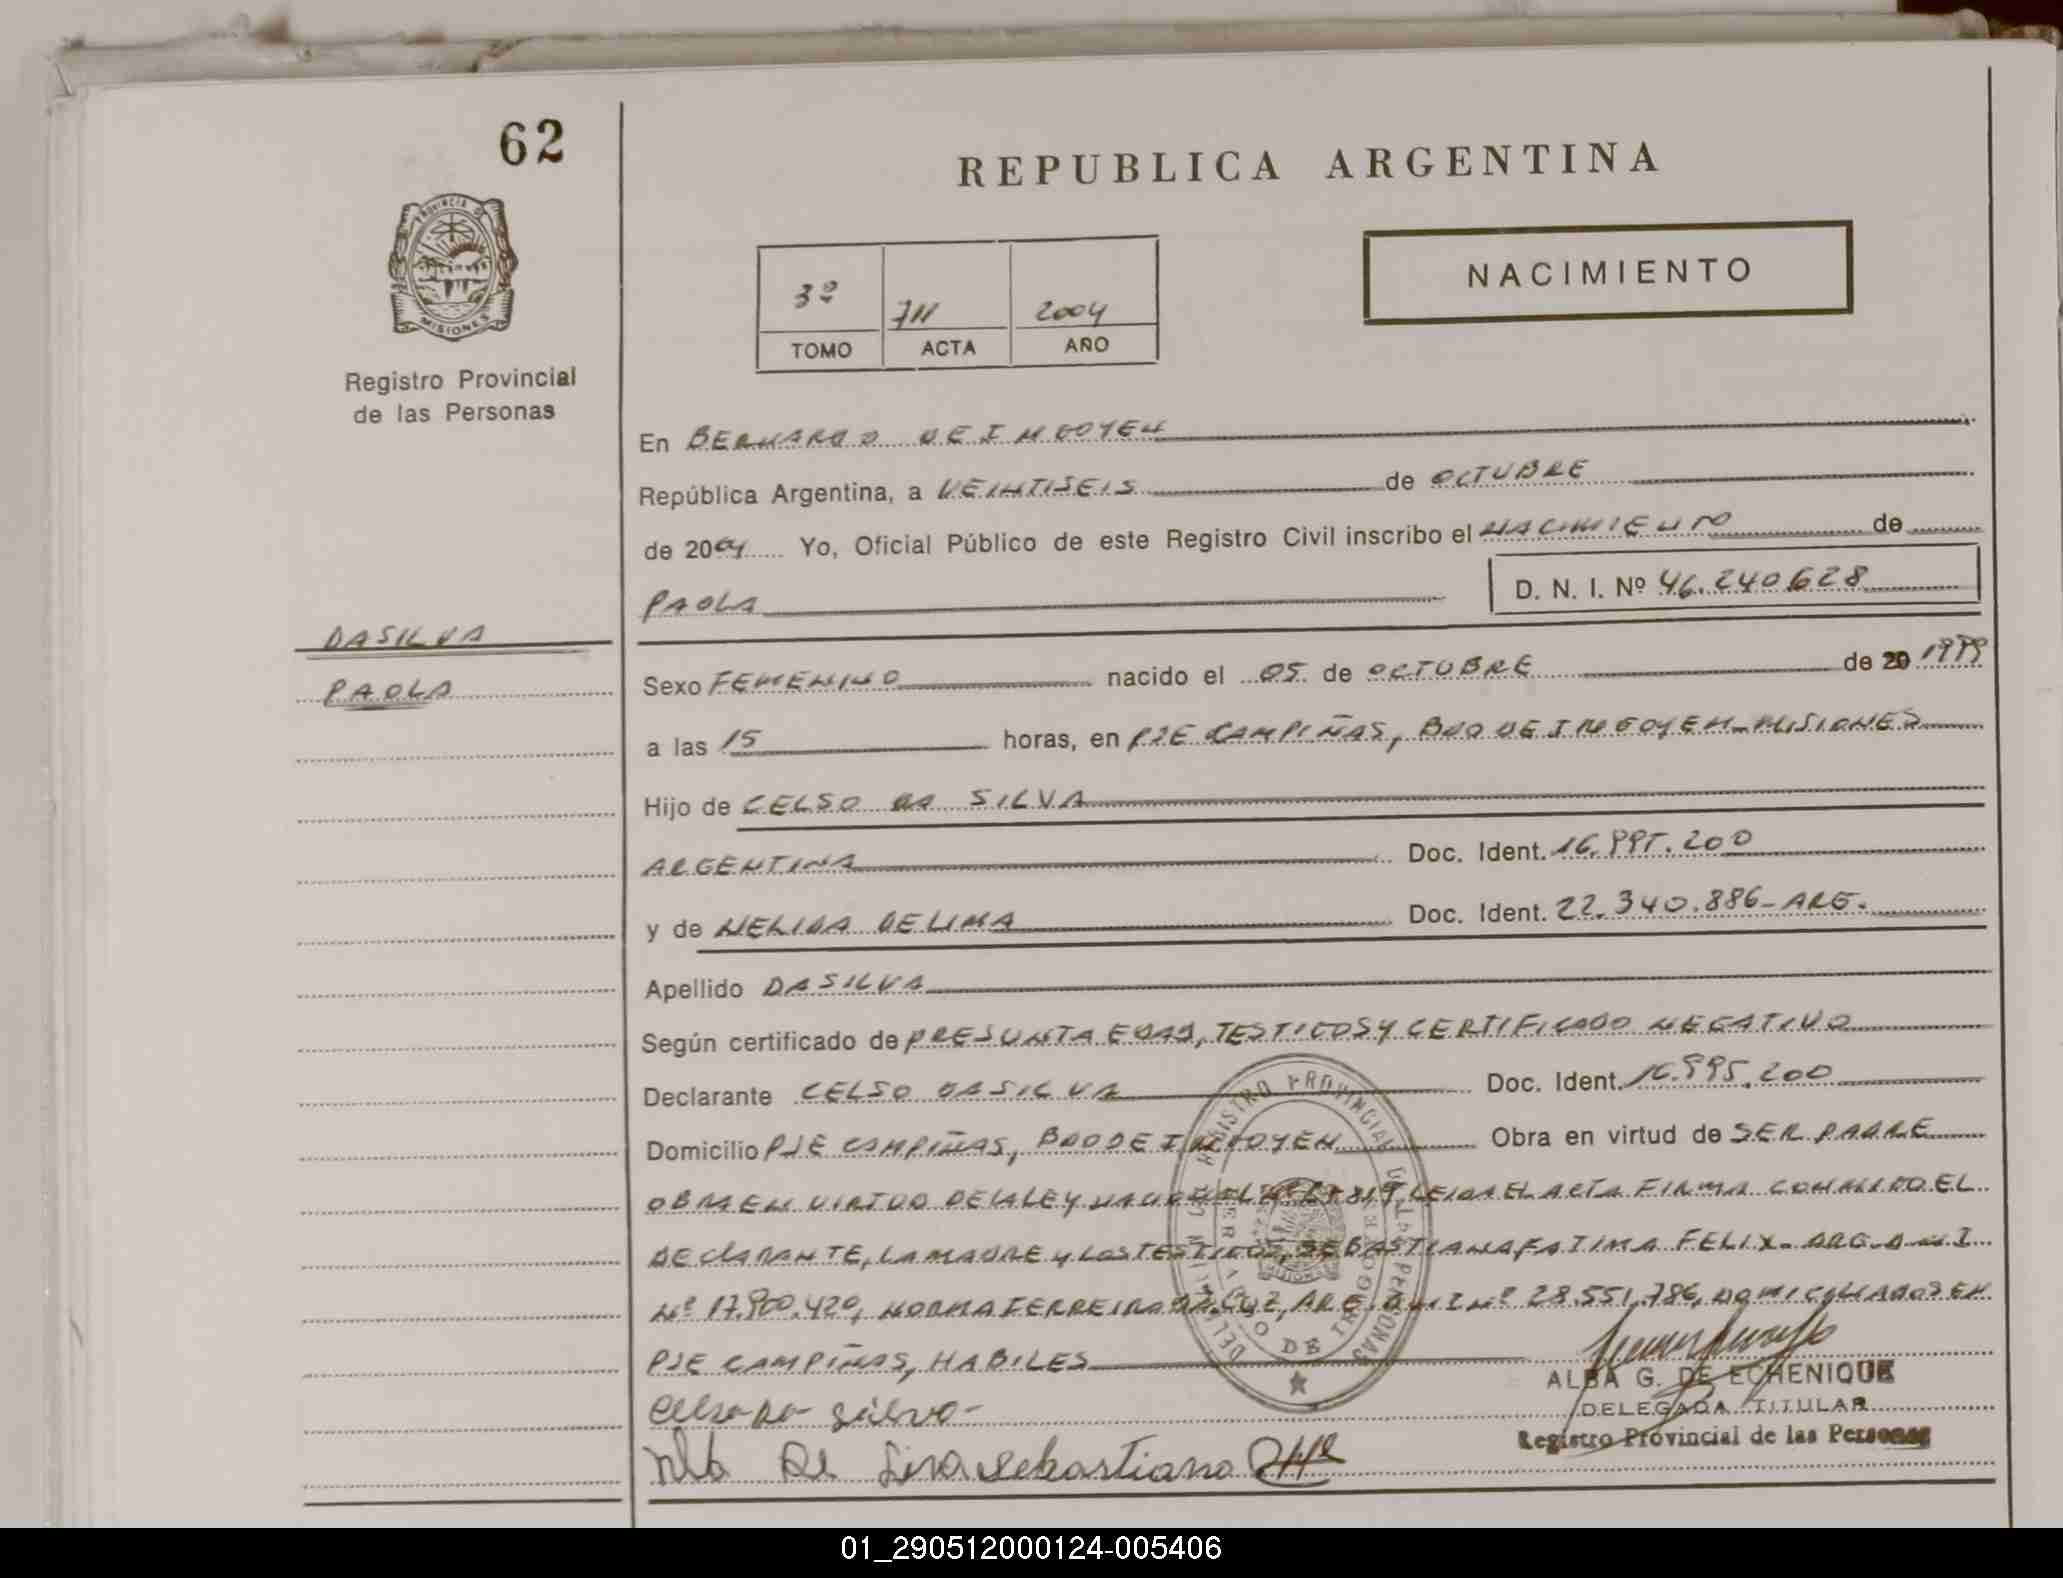 62
PROVINCIA DE
MISIONES
Registro Provincial
de las Personas
DASILVA
PAOLA
REPUBLICA ARGENTINA
NACIMIENTO
3º 711 2004
TOMO ACTA AÑO
En BERNARDO DE IRIGOYEN
República Argentina, a VEINTISEIS de OCTUBRE
de 2004 Yo, Oficial Público de este Registro Civil inscribo el NACIMIENTO de
PAOLA D. N. I. Nº 46.240.628
Sexo FEMENINO nacido el 05 de OCTUBRE de 20 1999
a las 15 horas, en PJE CAMPIÑAS, BDO DE IRIGOYEN-MISIONES
Hijo de CELSO DA SILVA
ARGENTINA Doc. Ident. 16.995.200
y de NELIDA DELIMA Doc. Ident. 22.340.886-ARG.
Apellido DASILVA
Según certificado de PRESUNTA EDAD, TESTIGOS Y CERTIFICADO NEGATIVO
Declarante CELSO DASILVA Doc. Ident. 16.995.200
Domicilio PJE CAMPIÑAS, BDO DE IRIGOYEN Obra en virtud de SER PADRE
OBRA EN VIRTUD DE LA LEY NACIONAL Nº LEIDA EL ACTA FIRMA CONMIGO EL
DECLARANTE, LA MADRE Y LOS TESTIGOS, SEBASTIANA FATIMA FELIX- ARG. D.N.I
Nº 17.900.420, NORMA FERREIRA DA CUZ, ARG. D.N.I Nº 28.551.786, DOMICILIADOS EN
PJE CAMPIÑAS, HABILES
Celso da silva
De Lima Sebastiana
DEL REGISTRO PROVINCIAL DE LAS PERSONAS
BERNARDO DE IRIGOYEN
ALBA G. DE ECHENIQUE
DELEGADA TITULAR
Registro Provincial de las Personas
01_290512000124-005406